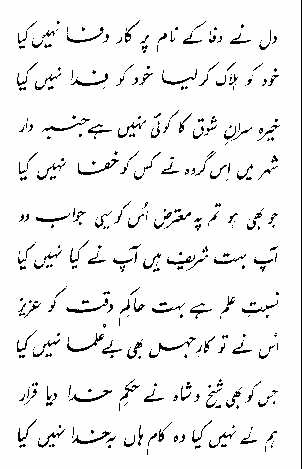 دل نے وفا کے نام پر کار وفا نہیں کیا
خود کو ہلاک کر لیا خود کو فدا نہیں کیا
خیرہ سرانِ شوق کا کوئی نہیں ہے جنبہ دار
شہر میں اِس گروہ نے کس کو خفا نہیں کیا
جو بھی ہو تم پہ معترض اُس کو یہی جواب دو
آپ بہت شریف ہیں آپ نے کیا نہیں کیا
نسبتِ علم ہے بہت حاکمِ وقت کو عزیز
اُس نے تو کارِ جہل بھی بے عُلما نہیں کیا
جس کو بھی شیخ و شاہ نے حکمِ خدا دیا قرار
ہم نے نہیں کیا وہ کام ہاں بہ خدا نہیں کیا